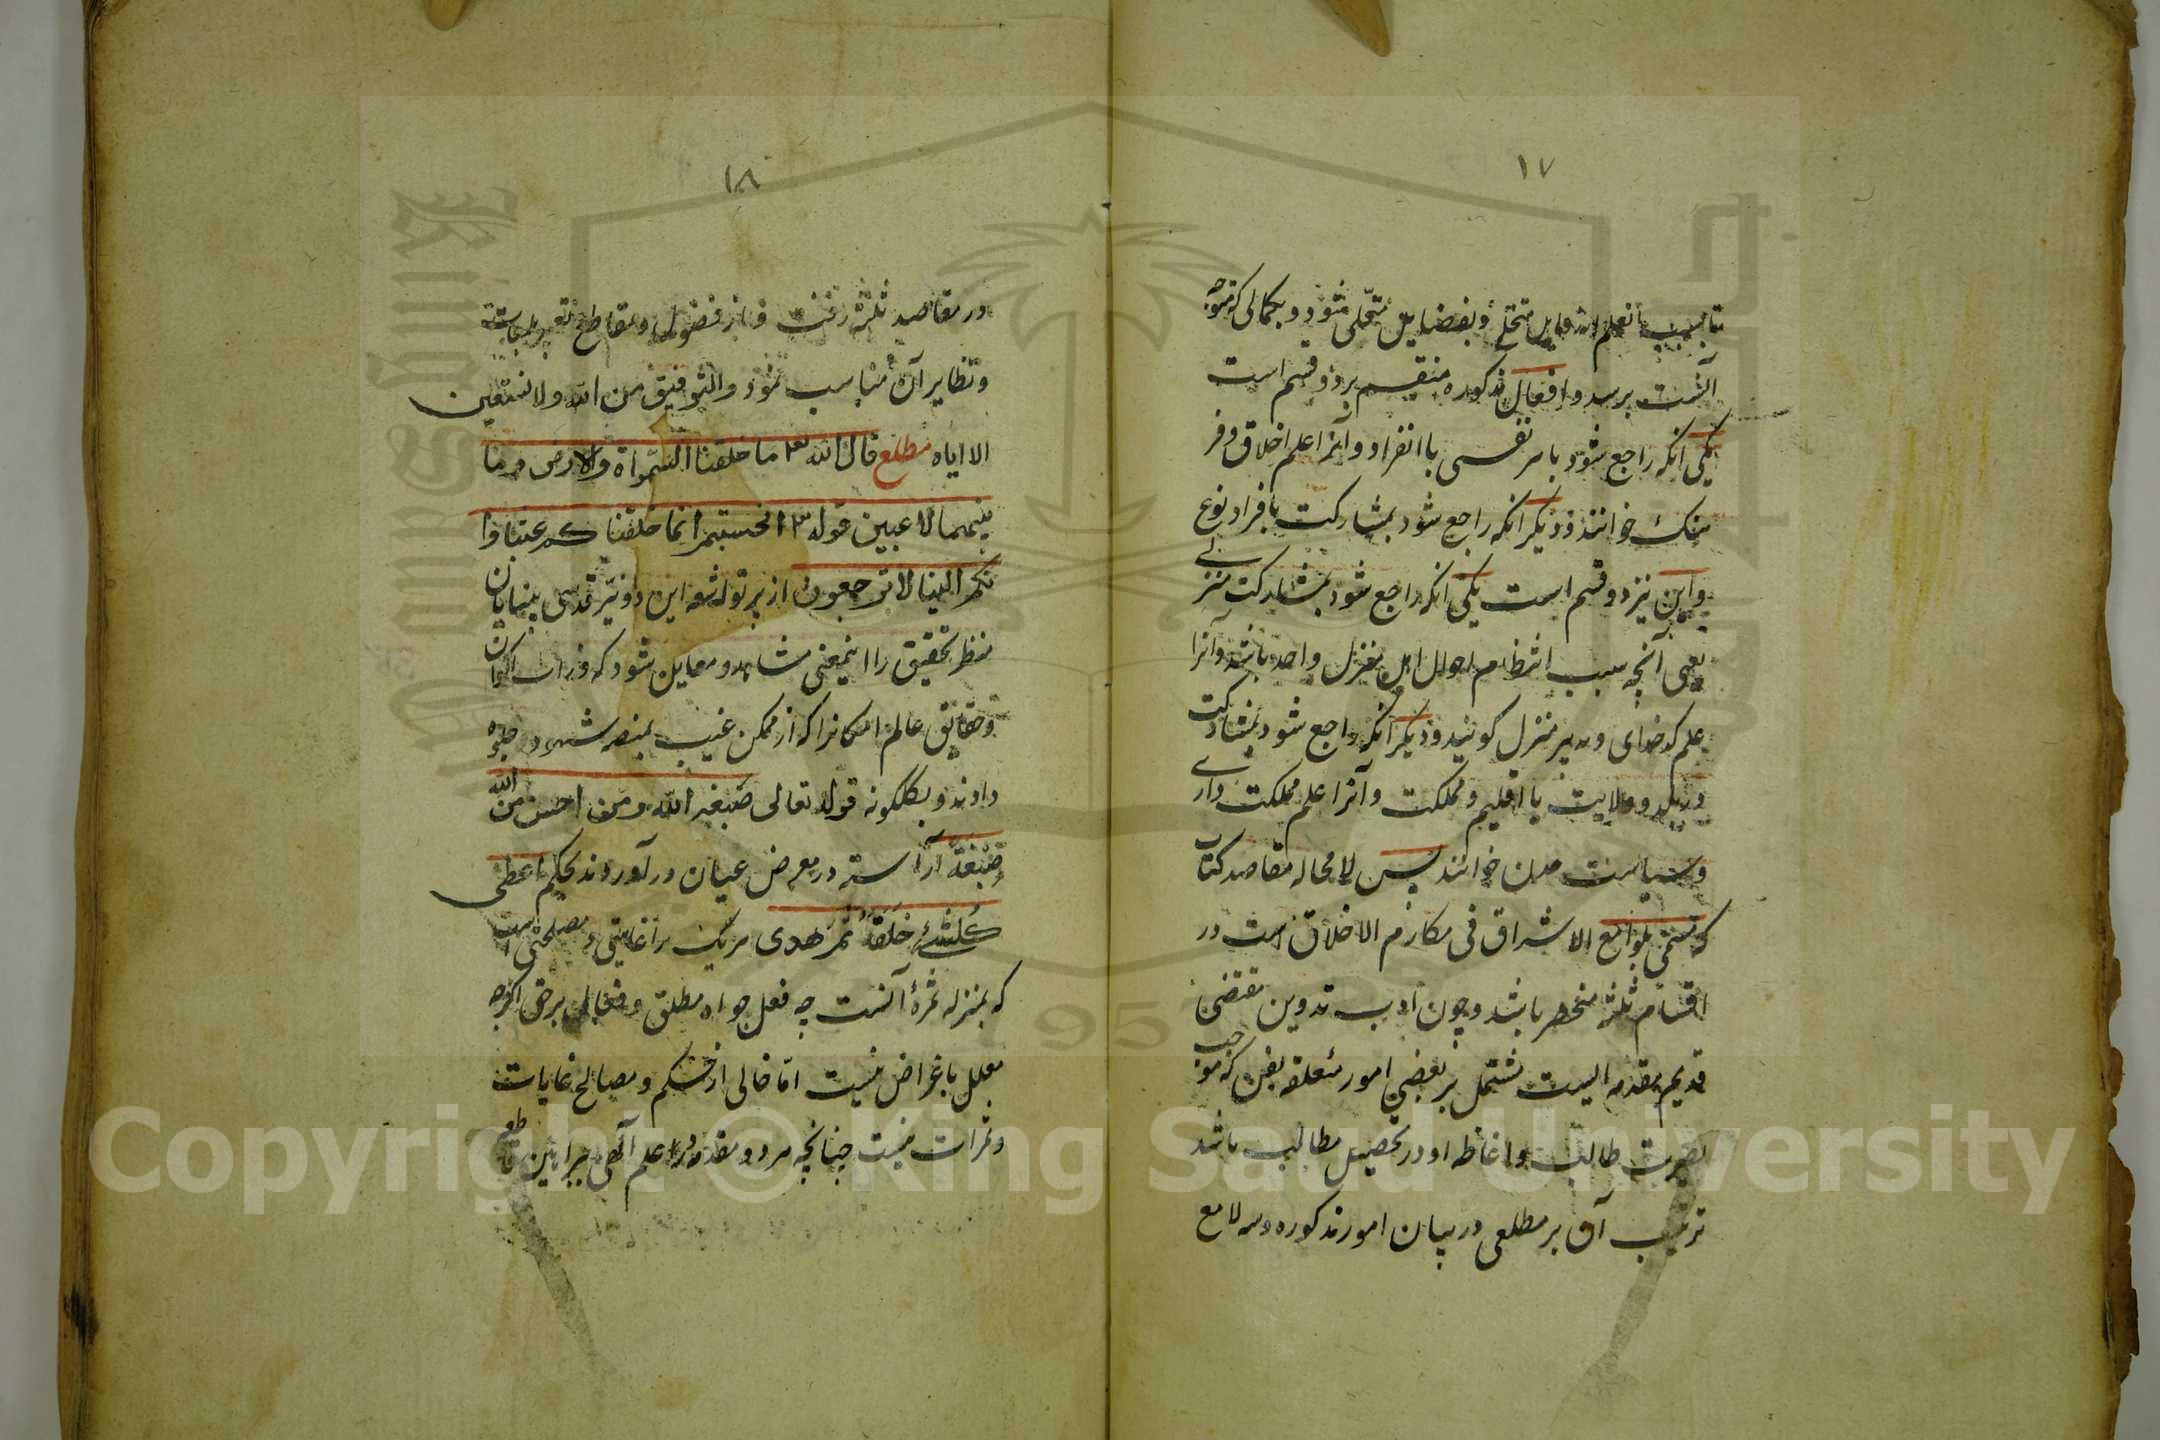 ۱۷
تا بسبب آن علم از رذایل متخلی و بفضایل متحلی شود و بکمالی که متوجه
آنست برسد و افعال مذکوره منقسم بر دو قسم است
یکی آنکه راجع شود با هر نفسی باانفراد و آنرا علم اخلاق و فر
هنک خوانند و دیکر آنکه راجع شود بمشارکت بافراد نوع
و این نیز دو قسم است یکی آنکه راجع شود بمشارکت منزلی
یعنی آنچه سبب انتظام احوال اهل منزل واحد باشد و آنرا
علم کدخدای و تدبیر منزل کویند و دیکر آنکه راجع شود بمشارکت
در بلد و ولایت یا اقلیم و مملکت و آنرا علم مملکت داری
و سیاست مدن خوانند پس لا محاله مقاصد کتاب
که مسمی بلوامع الاشراق فی مکارم الاخلاق است در
اقسام ثلثه منحصر باشد و چون ادب تدوین مقتضی
تقدیم مقدمه ایست مشتمل بر بعضی امور متعلقه بفن که موجب
بصیرت طالب و اعاظه او در تحصیل مطالب باشد
ترتیب آن بر مطلعی در بیان امور مذکوره و سه لامع
۱۸
در مقاصد ثلثه رفت و از فصول و مقاطع تعبیر بلمعات
و نظایر آن مناسب نمود والتوفیق من الله ولا نستعین
الا ایاه مطلع قال الله تع ما خلقنا السمواة والارض وما
بینهما لاعبین قوله تع افحسبتم انما خلقنا کم عبثا وا
نکم الینا لا ترجعون از پرتو اشعه این دو نیر قدسی بینایان
منظر تحقیق را اینمعنی مشاهد و معاین شود که ذرات اکوان
و حقایق عالم امکانرا که از ممکن غیب بمنصه شهود جلوه
دادند و بکلکونه قوله تعالی صبغة الله ومن احسن من الله
صبغة آراسته در معرض عیان در آوردند بحکم اعطی
کلشئ خلقه ثم هدی هر یک را غایتی و مصلحتی است
که بمنزله ثمرهٔ آنست چه فعل جواد مطلق و فعال بر حق اکرچه
معلل باغراض نیست اما خالی از حکم و مصالح غایات
و ثمرات نیست چنانچه هر دو مقدمه در علم آلهی ببراهین قاطعه